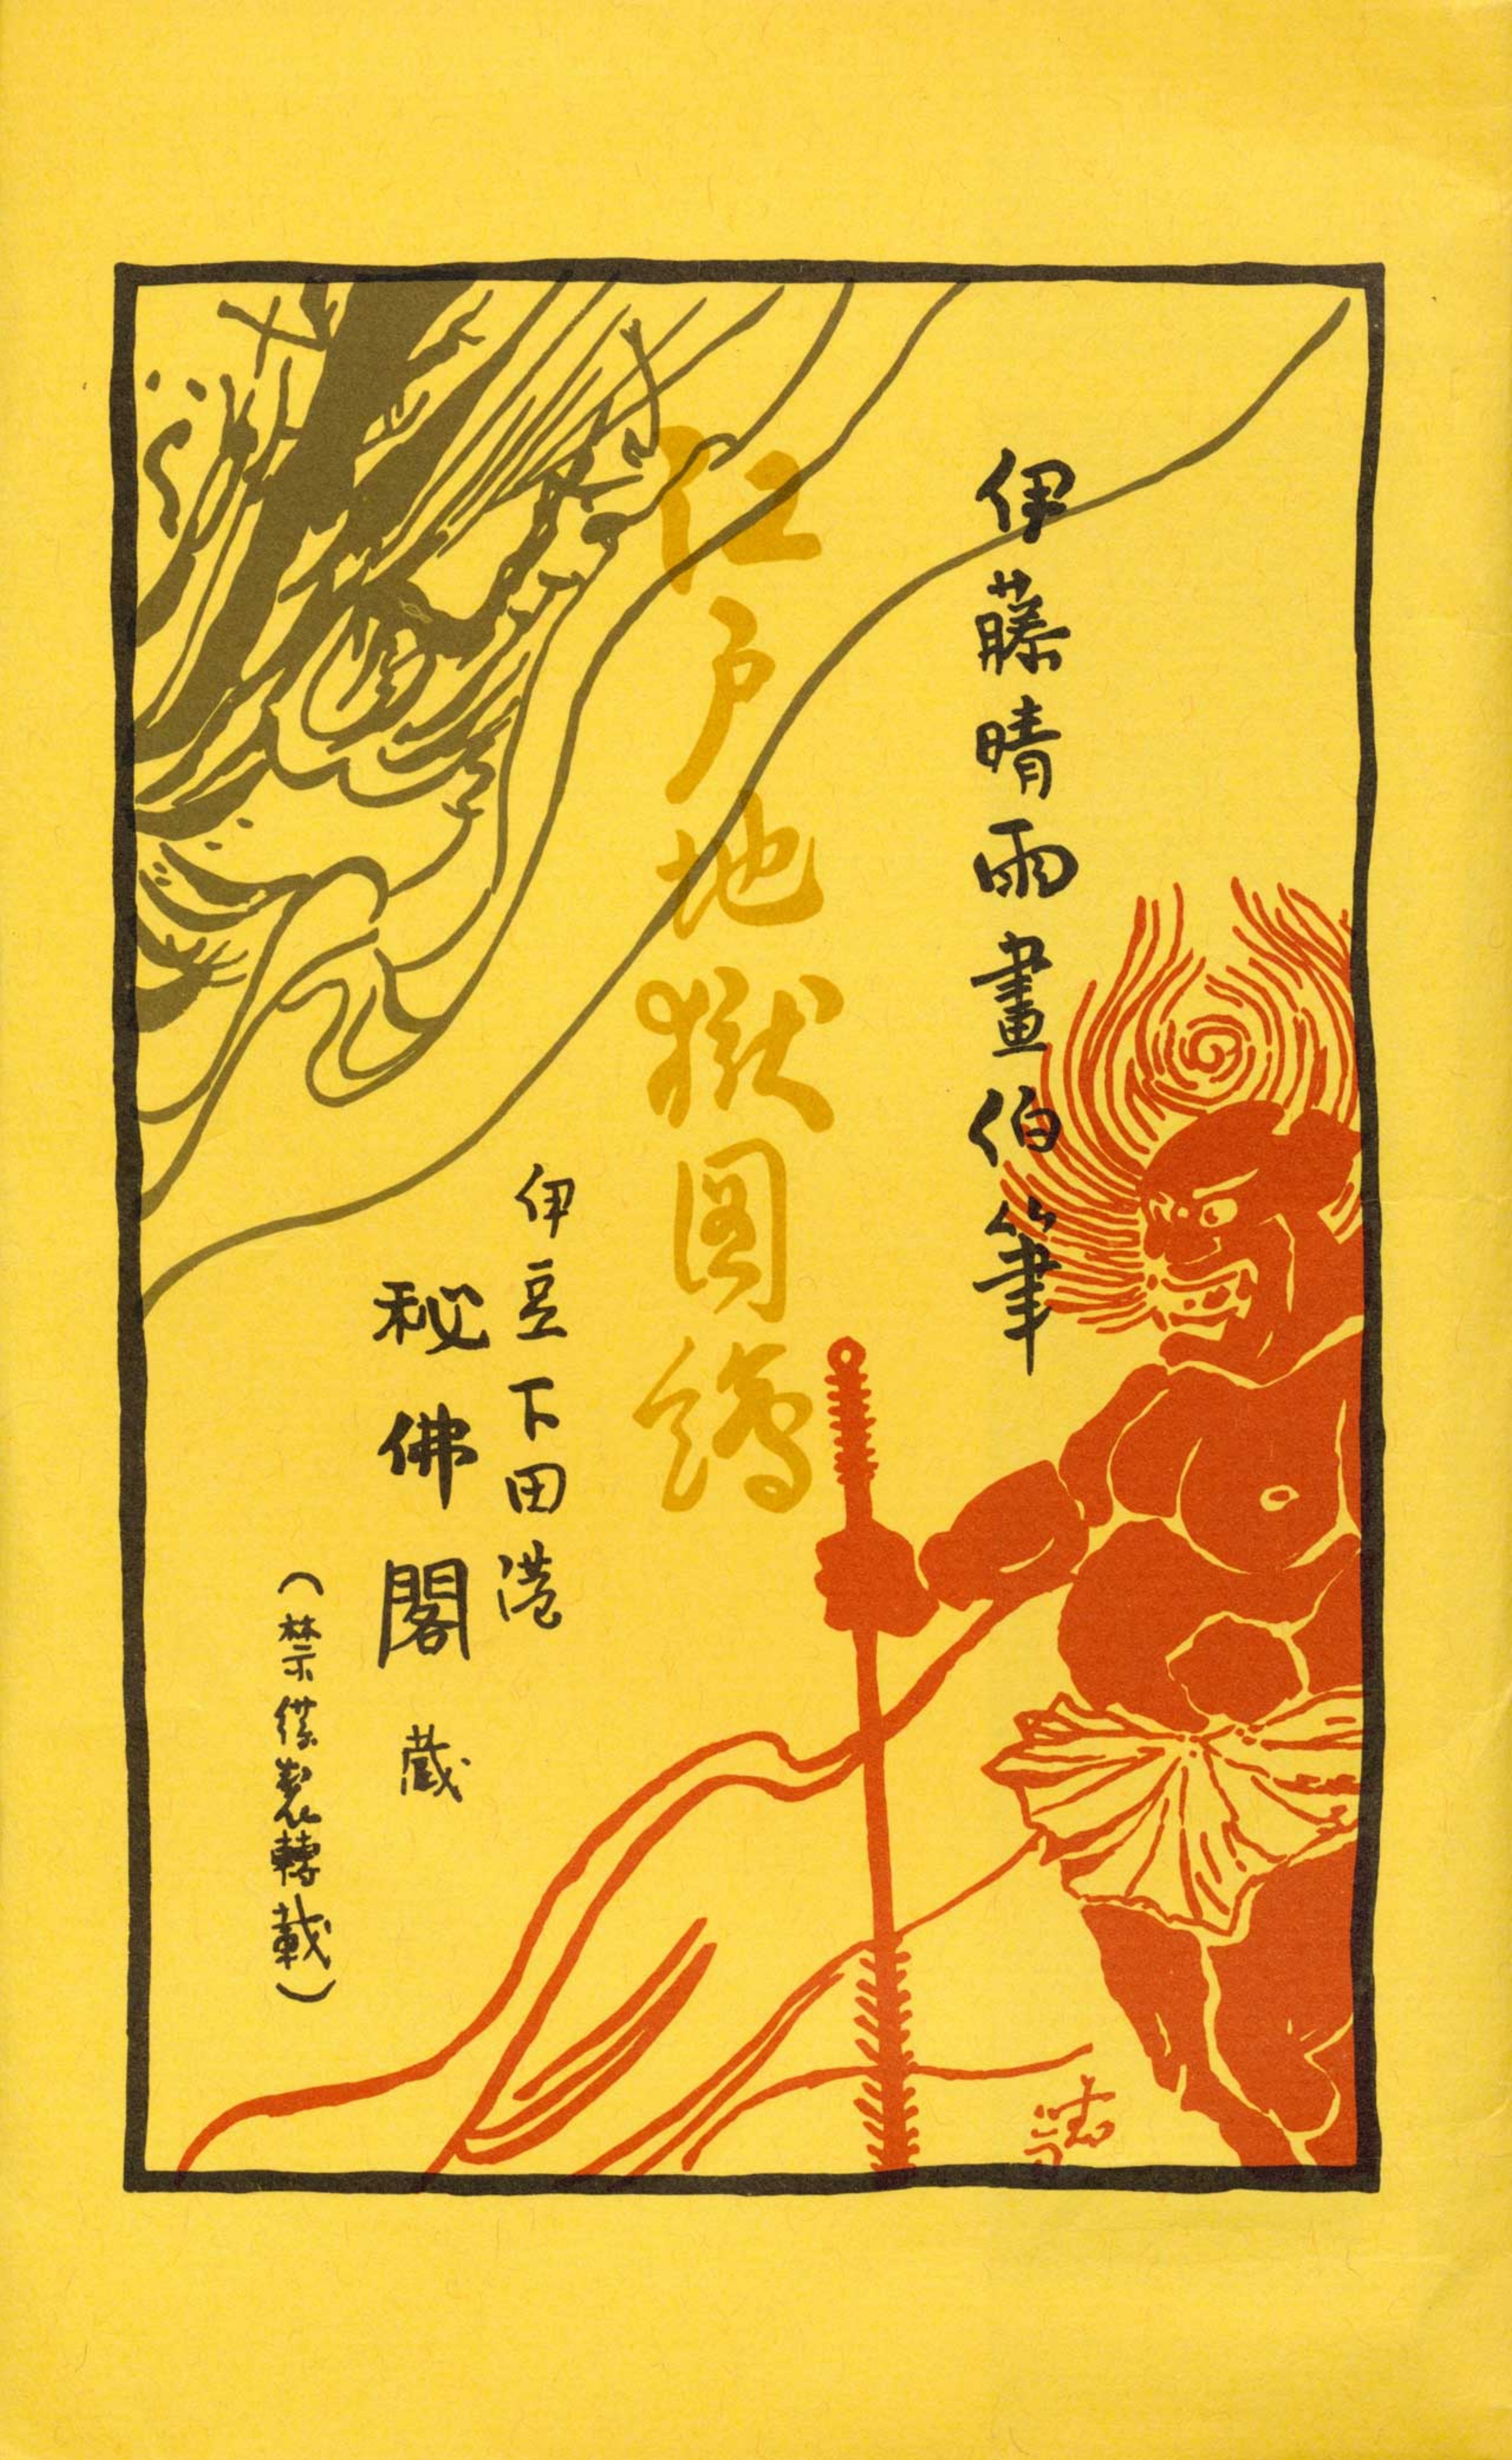 伊藤晴雨畫伯筆
江戸地獄図繪
伊豆下田港
秘佛閣蔵
（禁復製轉載）